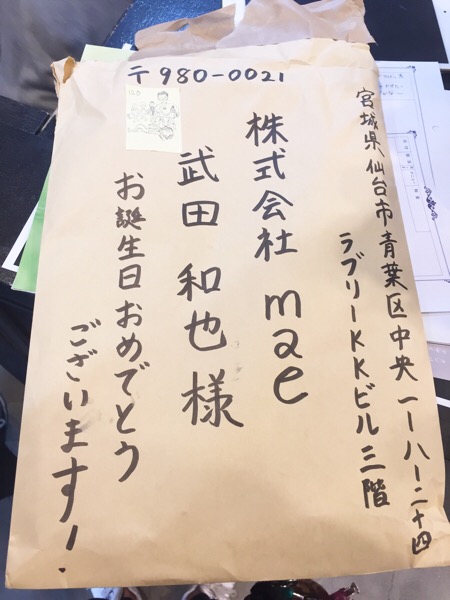 〒980-0021
宮城県仙台市青葉区中央一ー八ー二十四
ラブリーKKビル三階
株式会社mae
武田和也様
お誕生日おめでとう
ございます!